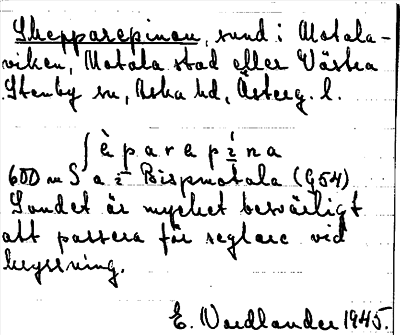 Skepparepinan, sund i Motala-
viken, Motala stad eller Västra
Stenby sn, Aska hd, Österg. l.
ʃèparepína
600 m S a Bispmotala (G54)
Sundet är mycket besvärligt
att passera för seglare vid
kryssning.
E. Nordlander 1945.